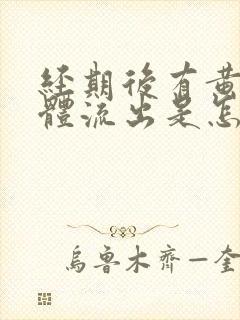 經期後有黃
體流出是怎
烏魯木齊一奎